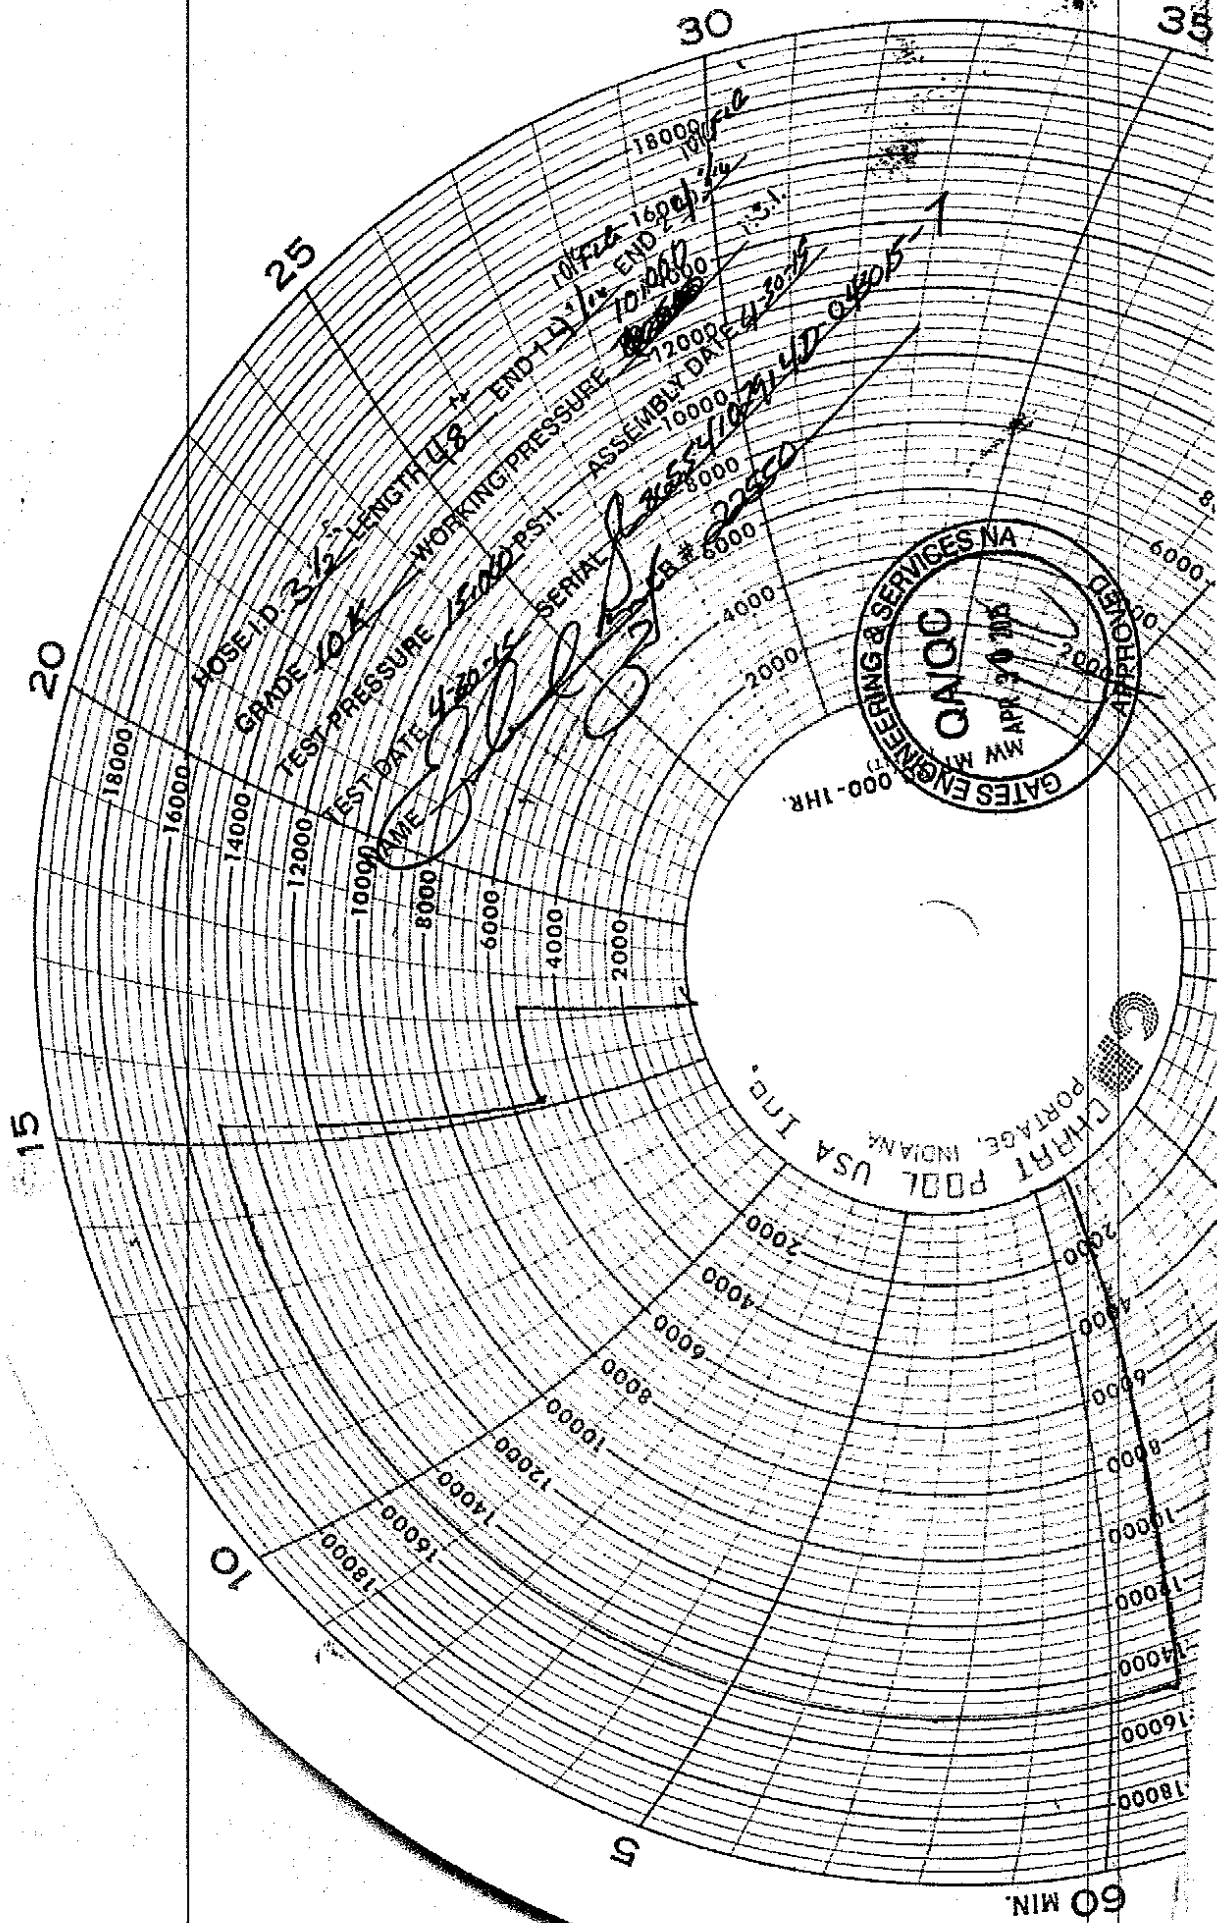 30
35
25
20
15
10
5
60 MIN.
HOSE I.D. 3 1/2 LENGTH 48 END 1 4 1/16 10K FLG END 2 4 1/16 10K FLG
GRADE 10K WORKING PRESSURE 10,000 P.S.I.
TEST PRESSURE 15,000 P.S.I. ASSEMBLY DATE 4-30-15
TEST DATE 4-30-15 SERIAL
NAME CB # 22550
18000
16000
12000
10000
8000
6000
4000
2000
18000
16000
14000
12000
10000
8000
6000
4000
2000
2000
4000
6000
8000
10000
12000
14000
16000
18000
2000
6000
8000
10000
14000
16000
18000
6000
2000
000-1HR.
GATES ENGINEERING & SERVICES NA
QA/QC
APR 30 2015
APPROVED
CHART POOL USA Inc.
PORTAGE, INDIANA